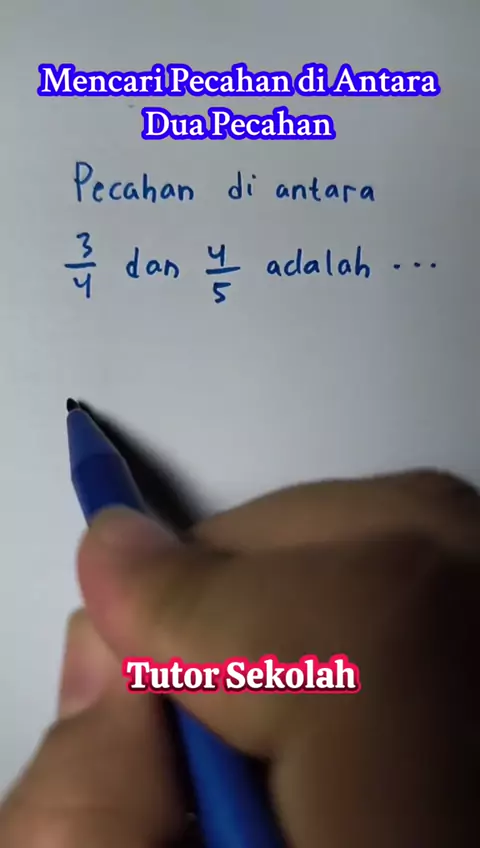 Mencari Pecahan di Antara
Dua Pecahan
Pecahan di antara
3/4 dan 4/5 adalah ...
Tutor Sekolah